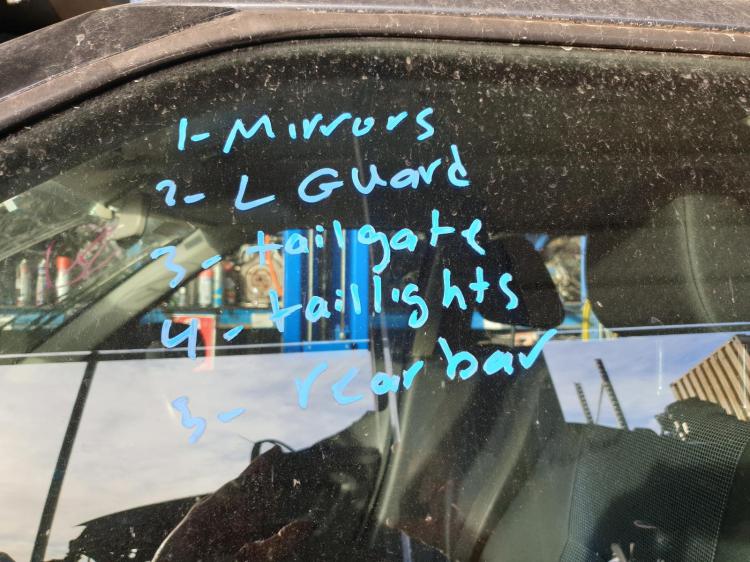 1- Mirrors
2- L Guard
3- tailgate
4- taillights
5- rear bar